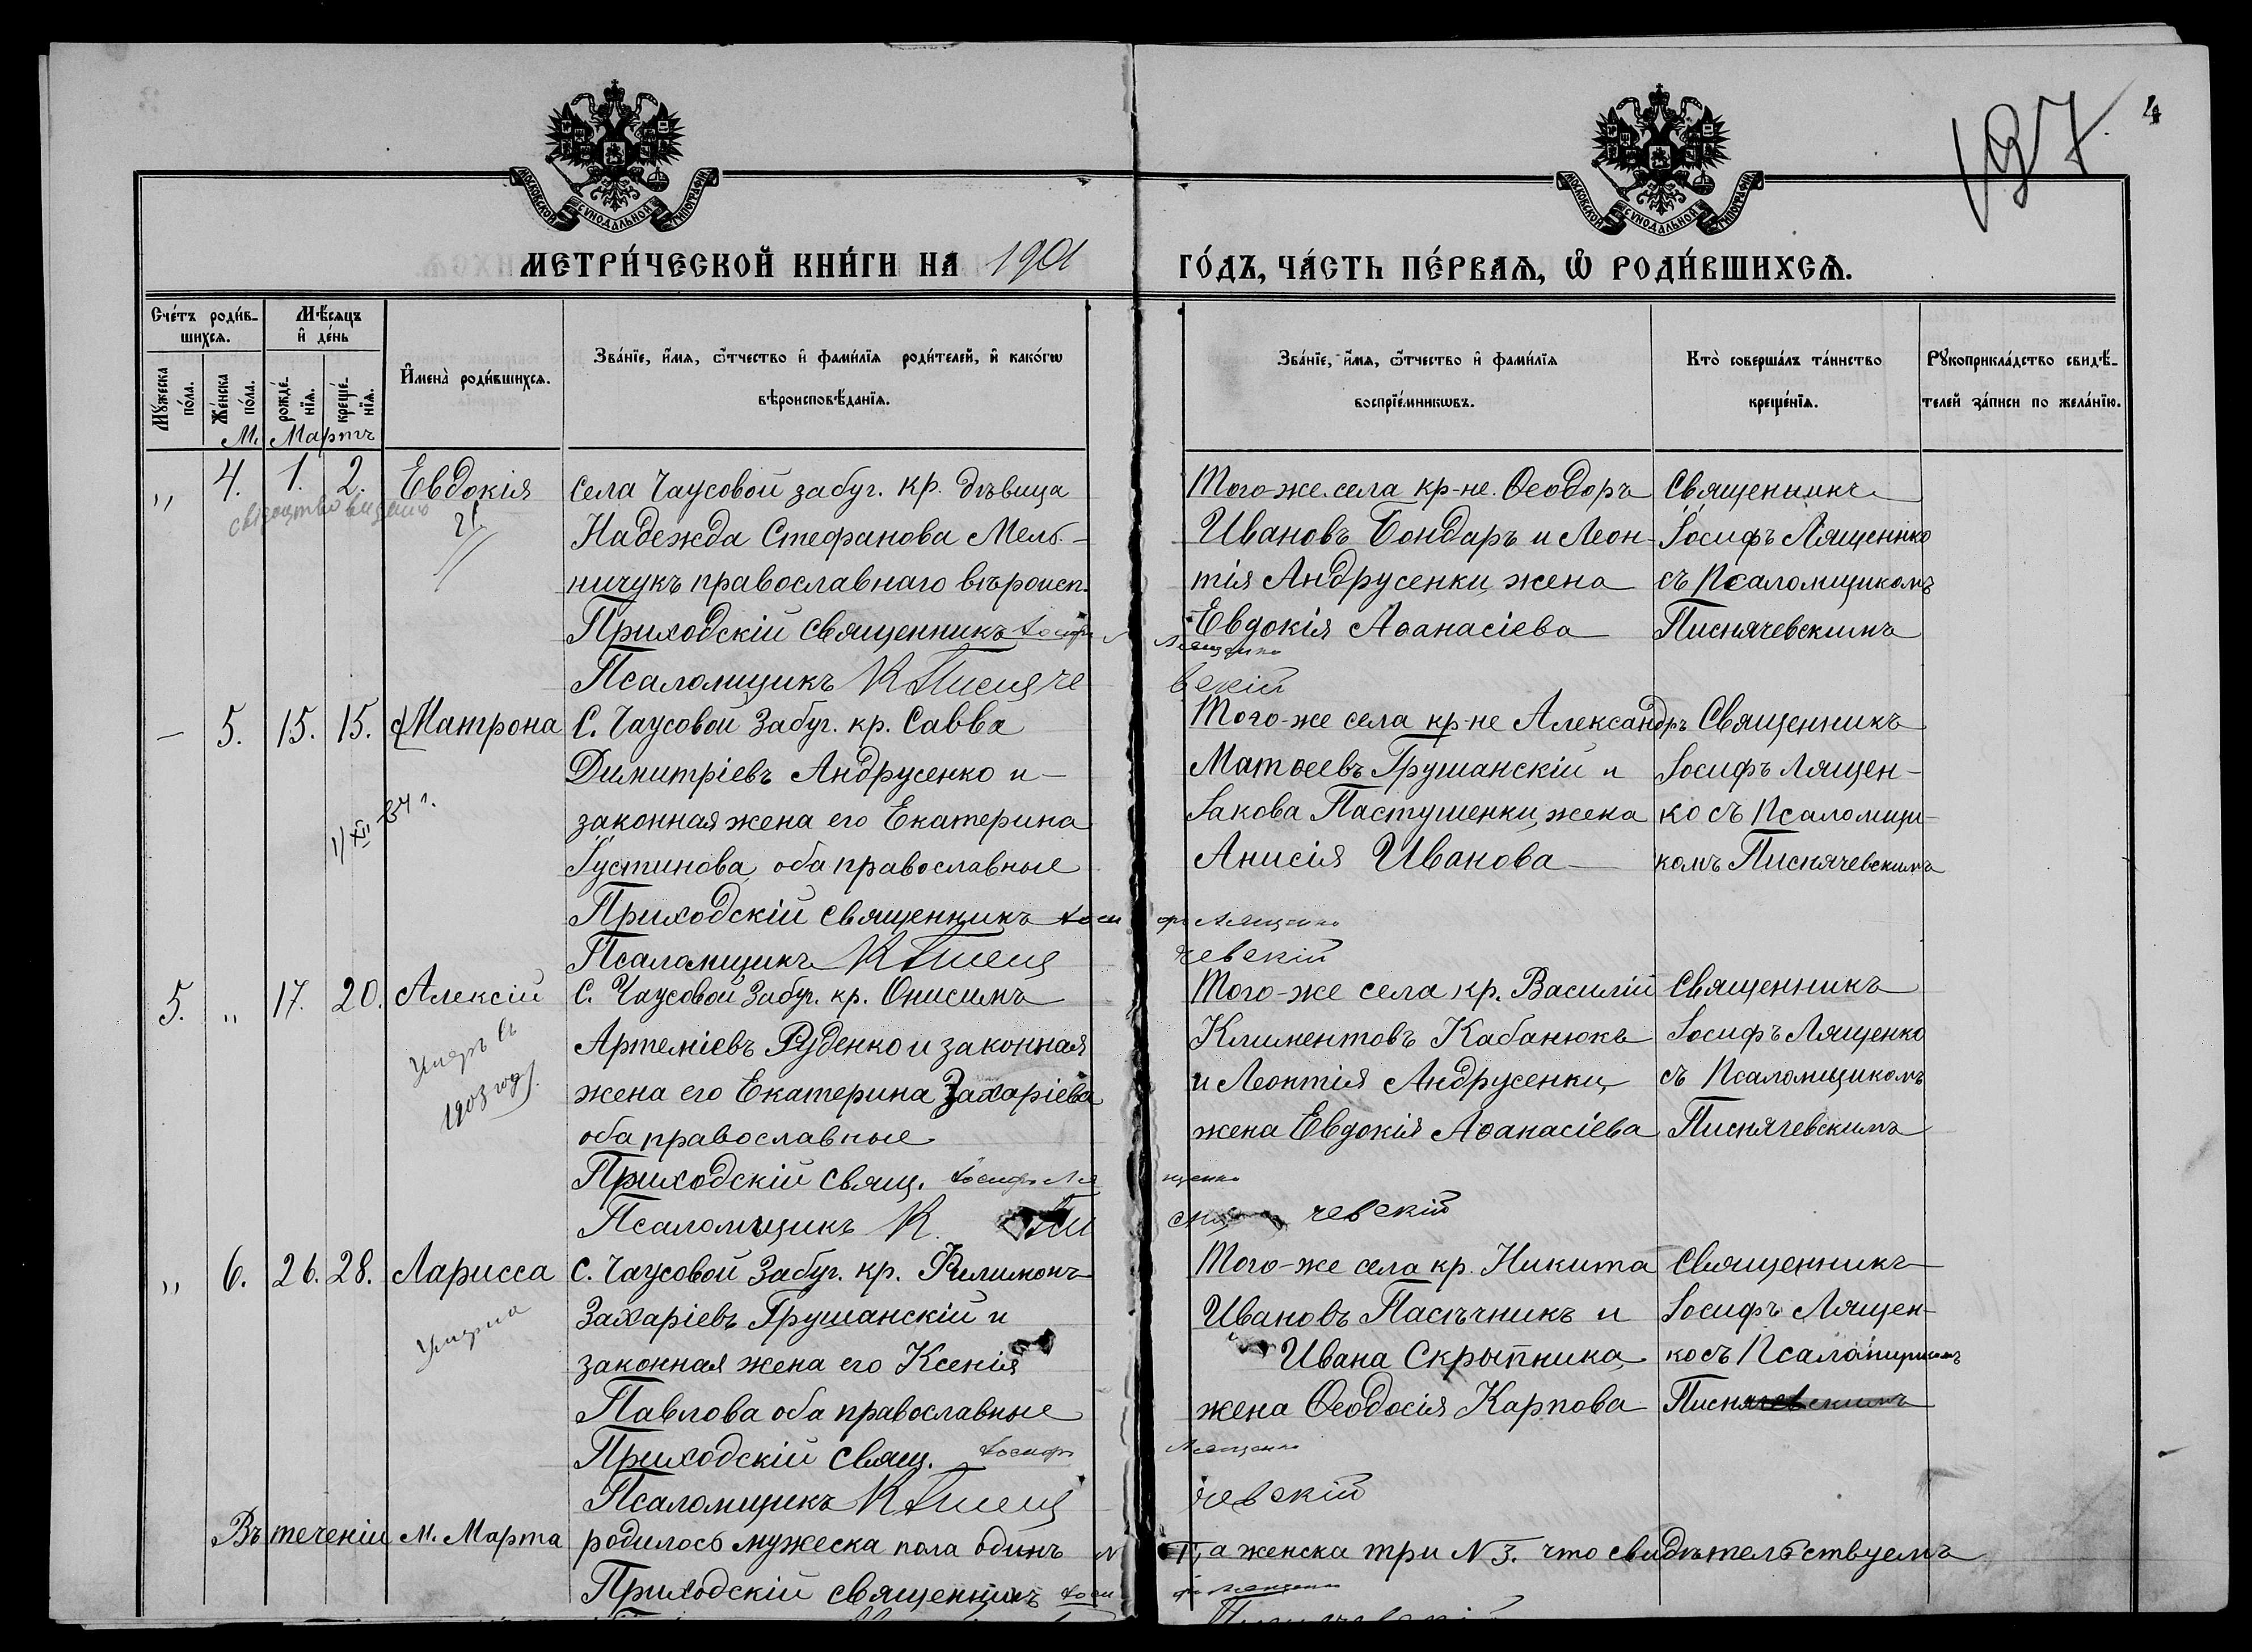 МОСКОВСКОЙ СУНОДАЛЬНОЙ ТИПОГРАФІИ
МОСКОВСКОЙ СУНОДАЛЬНОЙ ТИПОГРАФІИ
197.
4
МЕТРИ́ЧЕСКОЙ КНИ́ГИ НА 1901
ГО́ДЪ, ЧА́СТЬ ПЕ́РВАѦ, Ѡ҆ РОДИ́ВШИХСѦ.
Сче́тъ роди́в-
шихсѧ.
Мѣ́сѧцъ
и҆ де́нь
Мꙋ́жеска
по́ла.
Же́нска
по́ла.
рожде́-
нїѧ.
креще́-
нїѧ.
И҆мена̀ роди́вшихсѧ.
Зва́нїе, и҆́мѧ, ѻ҆́тчество и҆ фами́лїѧ роди́телей, и҆ како́гѡ
вѣроисповѣ́данїѧ.
Зва́нїе, и҆́мѧ, ѻ҆́тчество и҆ фами́лїѧ
воспрїе́мникѡвъ.
Кто̀ соверша́лъ та́инство
креще́нїѧ.
Рꙋкоприкла́дство свидѣ́-
телей за́писи по жела́нїю.
М. Мартъ
„ 4. 1. 2. Евдокія
села Чаусовой забуг. кр. дѣвица
Надежда Стефанова Мель-
ничукъ православнаго вѣроисп.
Приходскій священникъ Іосифъ
Лященко
Псаломщикъ К Писняче
вскій
Того-же села кр-не. Ѳеодоръ
Ивановъ Бондаръ и Леон-
тія Андрусенки жена
Евдокія Аѳанасіева
Священникъ
Іосифъ Лященко
съ Псаломщикомъ
Писнячевскимъ
— 5. 15. 15. Матрона
1/XII
С. Чаусовой Забуг. кр. Савва
Димитріевъ Андрусенко и —
законная жена его Екатерина
Іустинова, оба православные
Приходскій священникъ Іоси
фъ Лященко
Псаломщикъ К Писня
чевскій
Того-же села кр-не Александръ
Матѳеевъ Грушанскій и
Іакова Пастушенки жена
Анисія Иванова
Священникъ
Іосифъ Лящен-
ко съ Псаломщи-
комъ Писнячевскимъ
5. „ 17. 20. Алексій
Умеръ въ
1903 году.
С. Чаусовой Забуг. кр. Онисимъ
Артеміевъ Руденко и законная
жена его Екатерина Захаріева
оба православные
Приходскій свящ. Іосифъ Ля
щенко
Псаломщикъ К. Пи
сня чевскій
Того-же села кр. Василій
Климентовъ Кабанюкъ
и Леонтія Андрусенки
жена Евдокія Аѳанасіева
Священникъ
Іосифъ Лященко
съ Псаломщикомъ
Писнячевскимъ
„ 6. 26. 28. Ларисса
Умерла
С. Чаусовой Забуг. кр. Филимонъ
Захаріевъ Грушанскій и
законная жена его Ксенія
Павлова оба православные
Приходскій свящ. Іосифъ
Лященко
Псаломщикъ К Писня
чевскій
Того-же села кр. Никита
Ивановъ Пасѣчникъ и
Ивана Скрыпника
жена Ѳеодосія Карпова
Священникъ
Іосифъ Лящен-
ко съ Псаломщикомъ
Писнячевскимъ
Въ теченіи м. Марта родилось мужеска пола одинъ N 1, а женска три N 3. что свидѣтельствуемъ
Приходскій священникъ Іоси
фъ Лященко